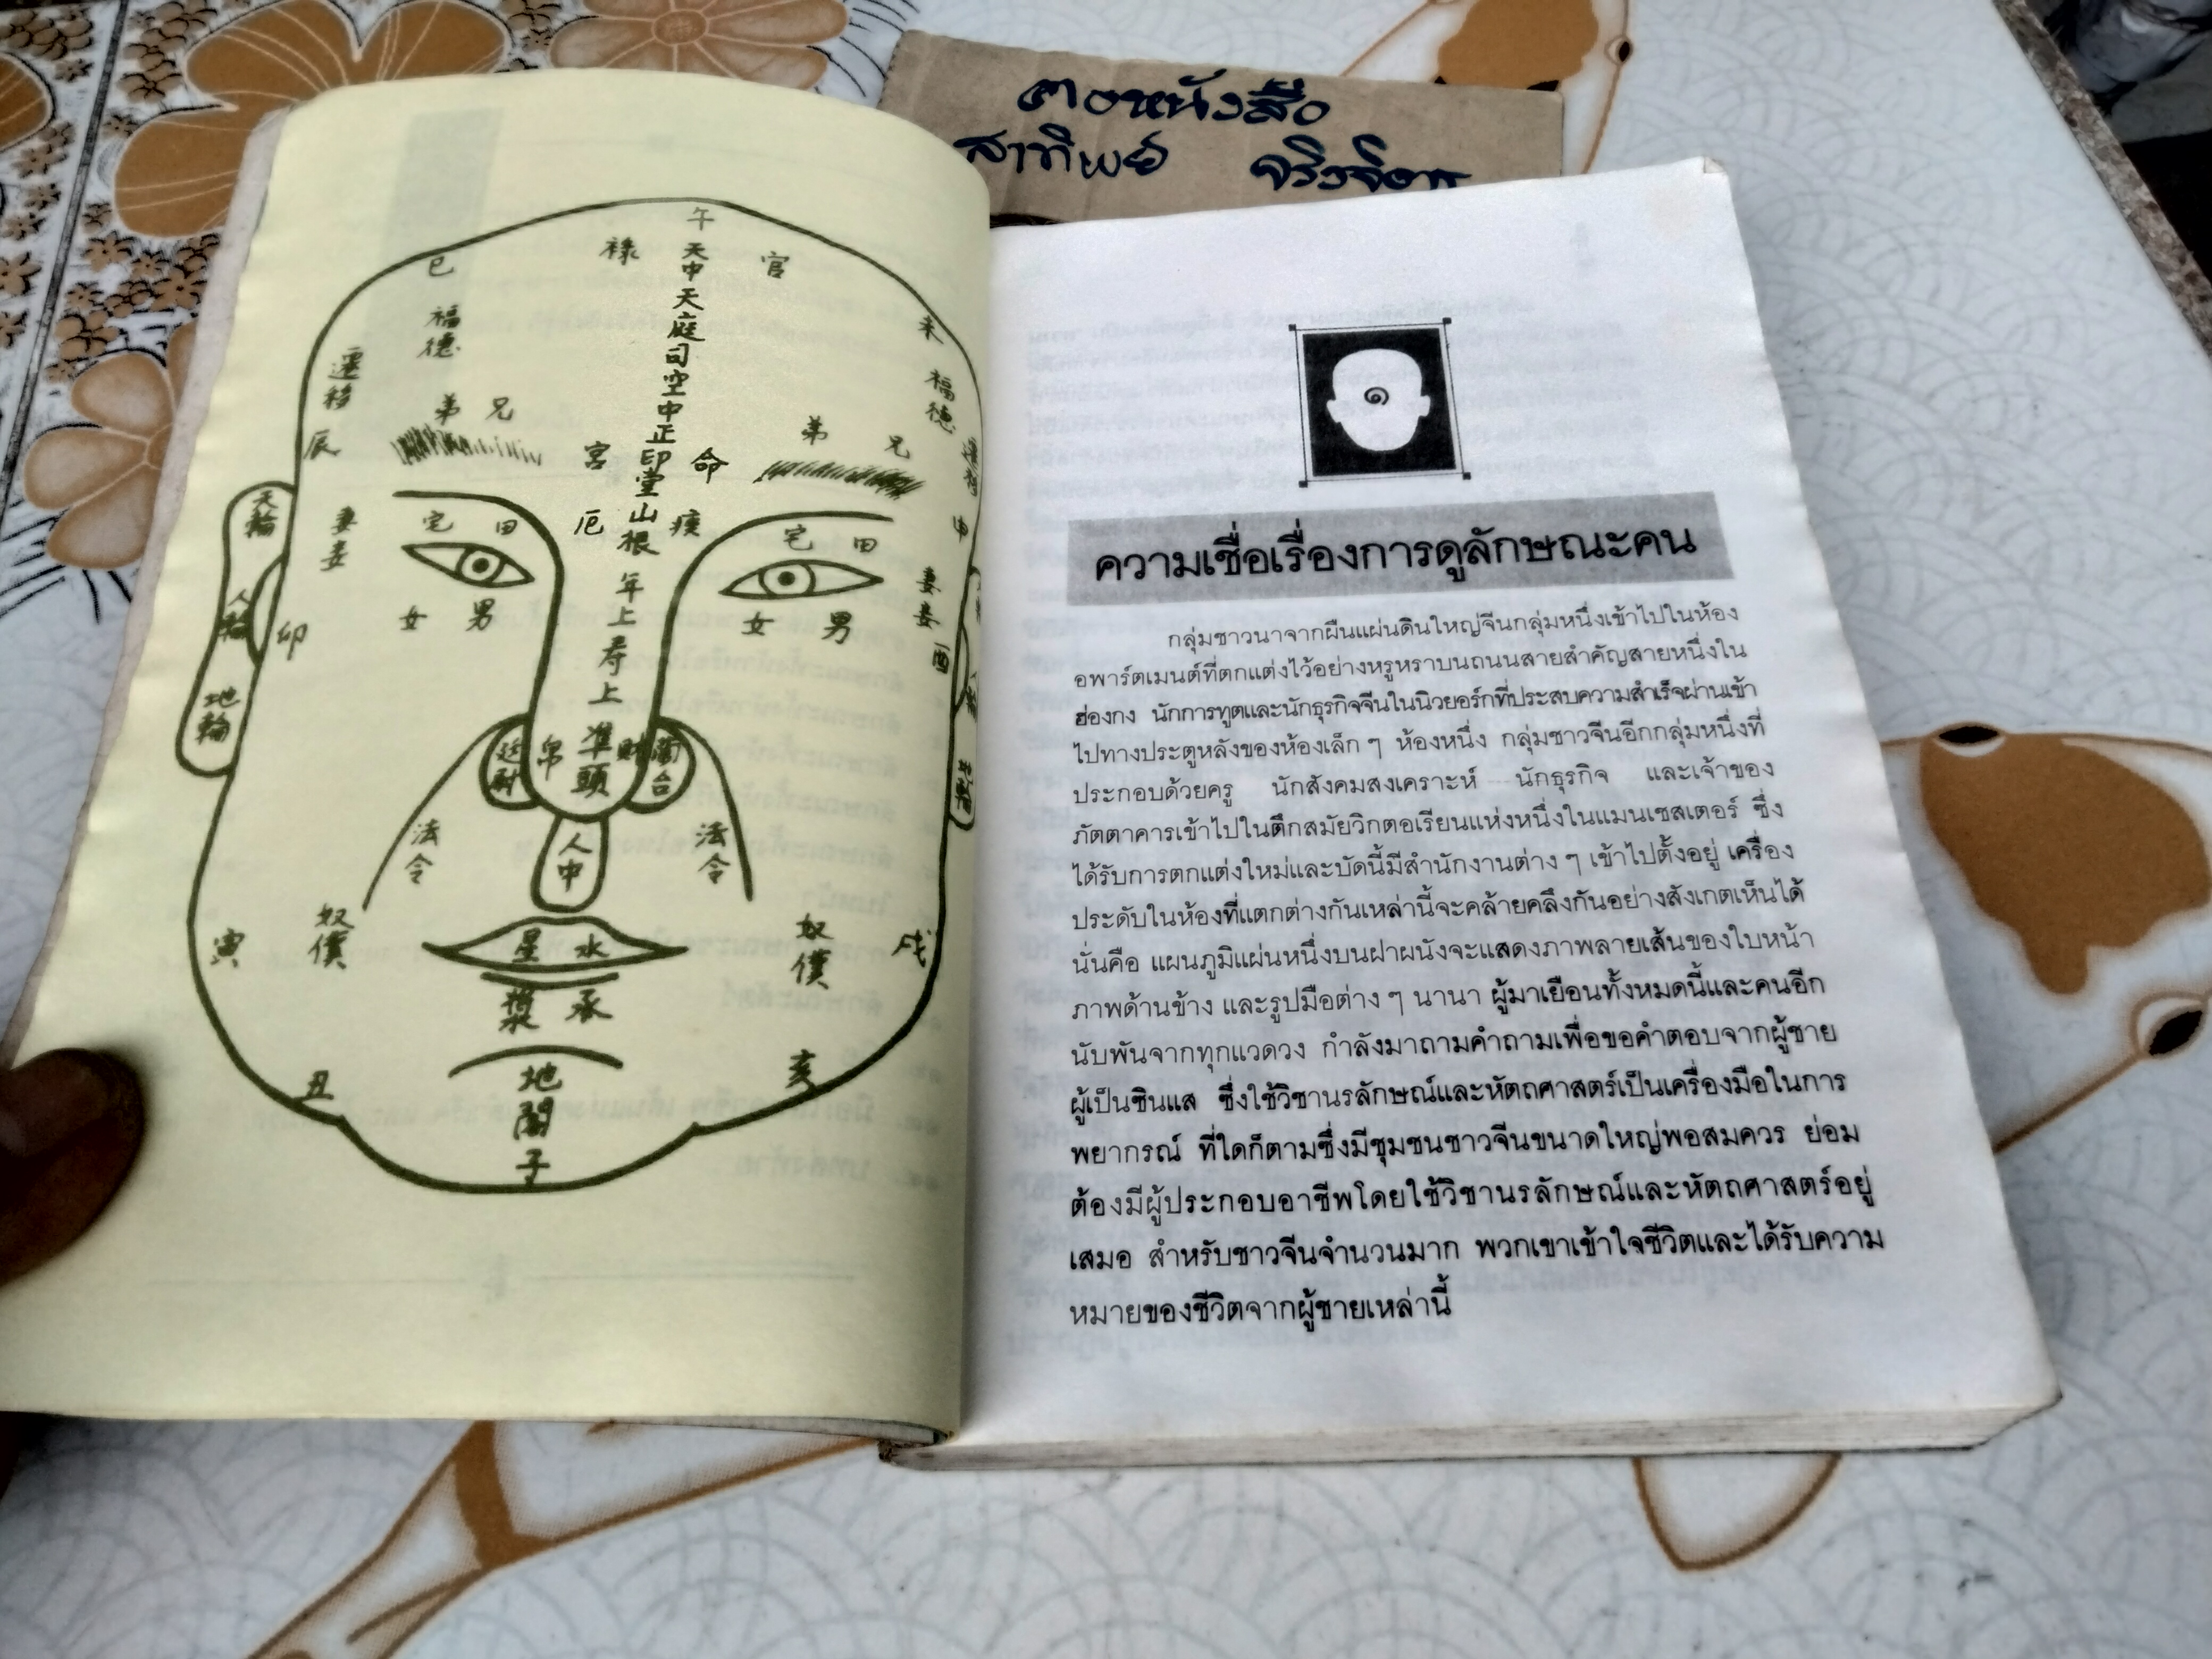 ฅอหนังสือ
สาทิพย์ จริงจิตร
午
官 祿
天中
天庭
司空
中正
印堂
山根
年上
壽上
準頭
人中
水星
承漿
地閣
子
巳
福德
遷移
兄弟
辰
未
福德
兄弟
命宮
疾厄
申
天輪
人輪
地輪
妻妾
田宅
男女
卯
田宅
男女
妻妾
酉
財帛
蘭台
廷尉
法令
法令
奴僕
奴僕
寅
戌
丑
亥
๑
ความเชื่อเรื่องการดูลักษณะคน
กลุ่มชาวนาจากผืนแผ่นดินใหญ่จีนกลุ่มหนึ่งเข้าไปในห้อง
อพาร์ตเมนต์ที่ตกแต่งไว้อย่างหรูหราบนถนนสายสำคัญสายหนึ่งใน
ฮ่องกง นักการทูตและนักธุรกิจจีนในนิวยอร์กที่ประสบความสำเร็จผ่านเข้า
ไปทางประตูหลังของห้องเล็ก ๆ ห้องหนึ่ง กลุ่มชาวจีนอีกกลุ่มหนึ่งที่
ประกอบด้วยครู นักสังคมสงเคราะห์ นักธุรกิจ และเจ้าของ
ภัตตาคารเข้าไปในตึกสมัยวิกตอเรียนแห่งหนึ่งในแมนเชสเตอร์ ซึ่ง
ได้รับการตกแต่งใหม่และบัดนี้มีสำนักงานต่าง ๆ เข้าไปตั้งอยู่ เครื่อง
ประดับในห้องที่แตกต่างกันเหล่านี้จะคล้ายคลึงกันอย่างสังเกตเห็นได้
นั่นคือ แผนภูมิแผ่นหนึ่งบนฝาผนังจะแสดงภาพลายเส้นของใบหน้า
ภาพด้านข้าง และรูปมือต่าง ๆ นานา ผู้มาเยือนทั้งหมดนี้และคนอีก
นับพันจากทุกแวดวง กำลังมาถามคำถามเพื่อขอคำตอบจากผู้ชาย
ผู้เป็นซินแส ซึ่งใช้วิชานรลักษณ์และหัตถศาสตร์เป็นเครื่องมือในการ
พยากรณ์ ที่ใดก็ตามซึ่งมีชุมชนชาวจีนขนาดใหญ่พอสมควร ย่อม
ต้องมีผู้ประกอบอาชีพโดยใช้วิชานรลักษณ์และหัตถศาสตร์อยู่
เสมอ สำหรับชาวจีนจำนวนมาก พวกเขาเข้าใจชีวิตและได้รับความ
หมายของชีวิตจากผู้ชายเหล่านี้